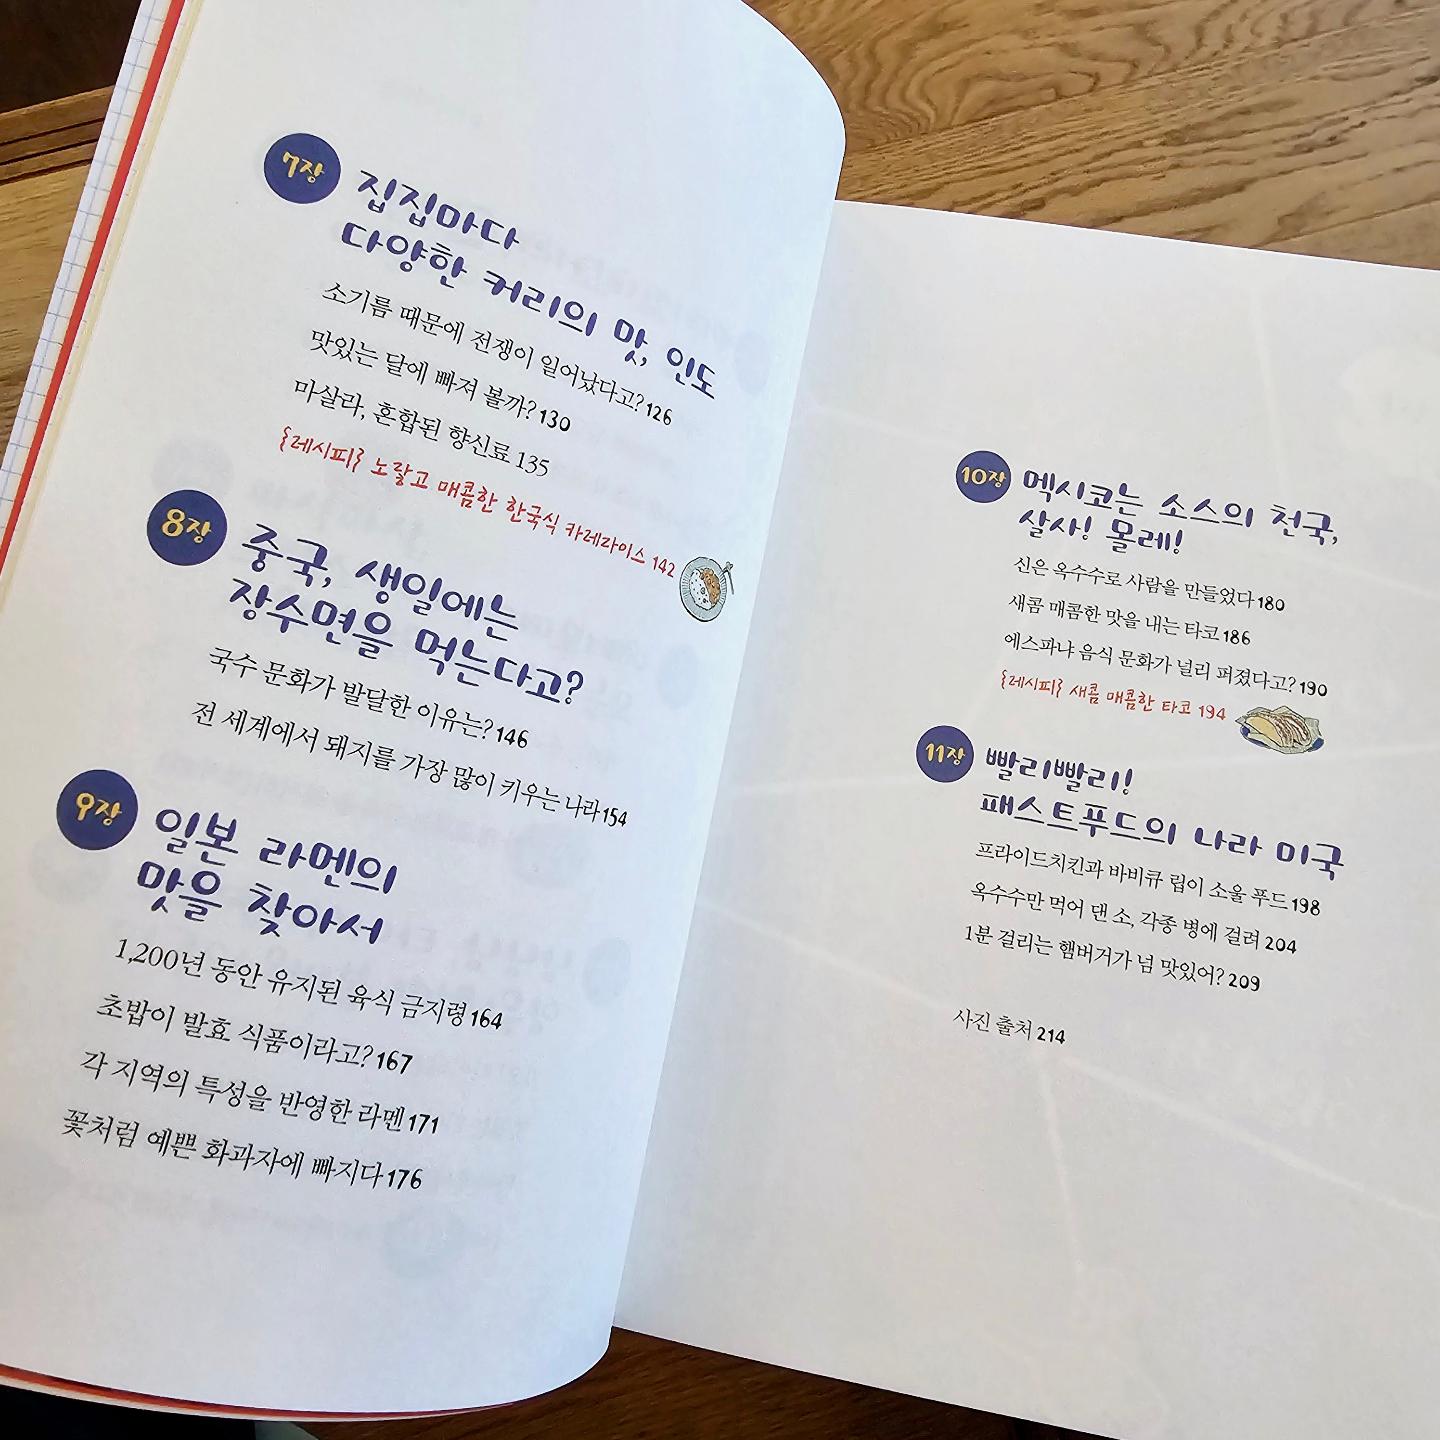 7장
집집마다
다양한 커리의 맛, 인도
소기름 때문에 전쟁이 일어났다고? 126
맛있는 달에 빠져 볼까? 130
마살라, 혼합된 향신료 135
{레시피} 노랗고 매콤한 한국식 카레라이스 142
8장
중국, 생일에는
장수면을 먹는다고?
국수 문화가 발달한 이유는? 146
전 세계에서 돼지를 가장 많이 키우는 나라 154
9장
일본 라멘의
맛을 찾아서
1,200년 동안 유지된 육식 금지령 164
초밥이 발효 식품이라고? 167
각 지역의 특성을 반영한 라멘 171
꽃처럼 예쁜 화과자에 빠지다 176
10장
멕시코는 소스의 천국,
살사! 몰레!
신은 옥수수로 사람을 만들었다 180
새콤 매콤한 맛을 내는 타코 186
에스파냐 음식 문화가 널리 퍼졌다고? 190
{레시피} 새콤 매콤한 타코 194
11장
빨리빨리!
패스트푸드의 나라 미국
프라이드치킨과 바비큐 립이 소울 푸드 198
옥수수만 먹어 댄 소, 각종 병에 걸려 204
1분 걸리는 햄버거가 넘 맛있어? 209
사진 출처 214